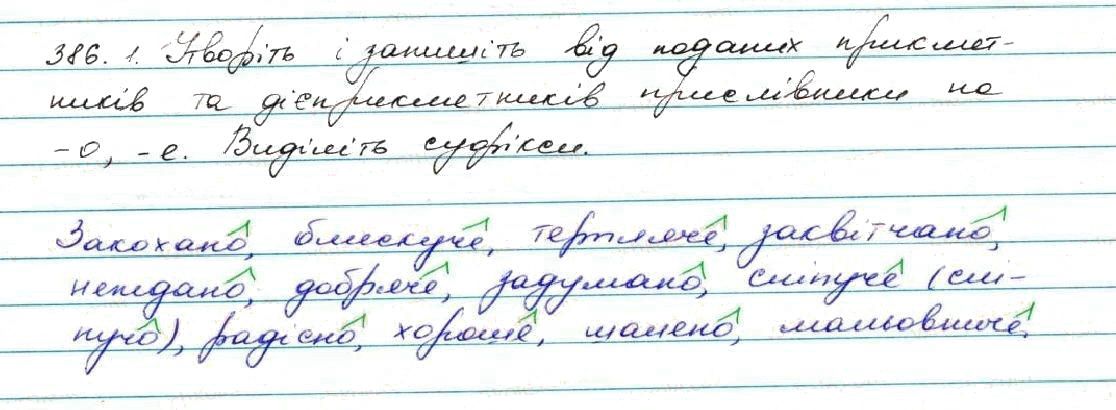 386. 1. Утворіть і запишіть від поданих прикмет-
ників та дієприкметників прислівники на
-о, -е. Виділіть суфікси.
Закохано, блискуче, терпляче, заквітчано,
неждано, добряче, задумано, сліпуче (слі-
пучо), радісно, хороше, шалено, мальовниче.